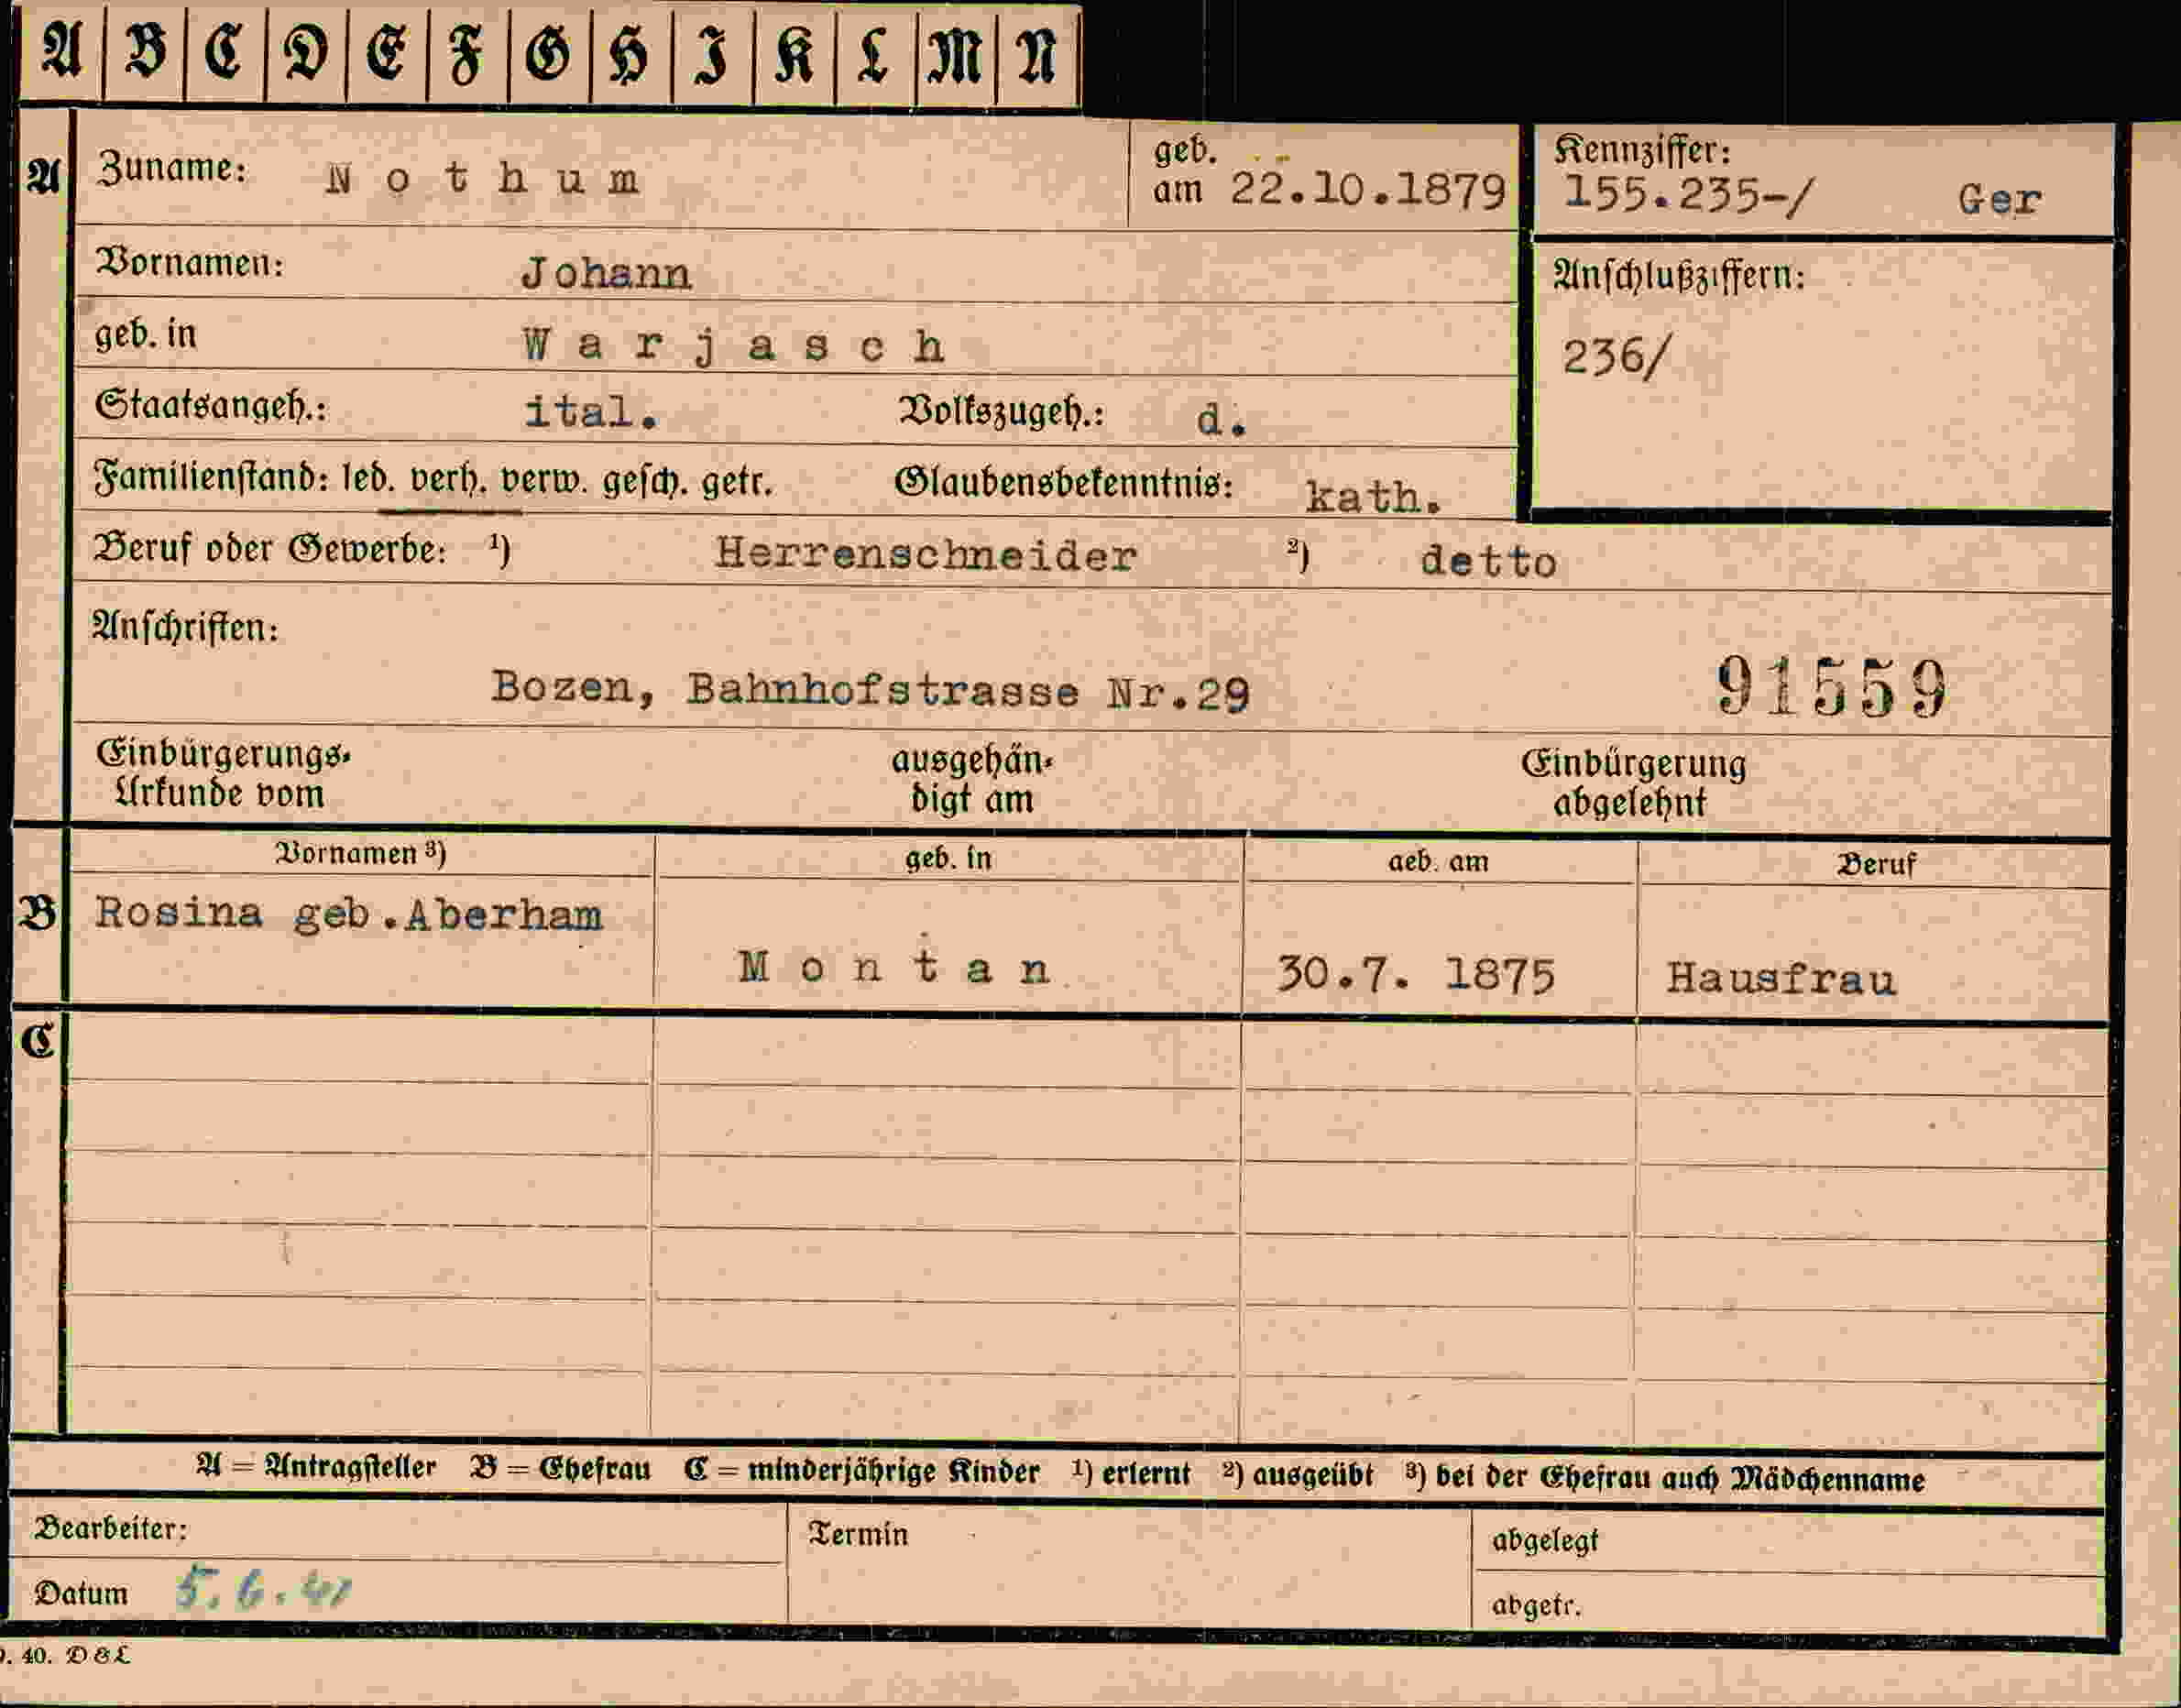 A B C D E F G H I K L M N
A Zuname: Nothum geb. am 22.10.1879 Kennziffer: 155.235-/ Ger
Vornamen: Johann Anschlußziffern:
geb. in Warjasch 236/
Staatsangeh.: ital. Volkszugeh.: d.
Familienstand: led. verh. verw. gesch. getr. Glaubensbekenntnis: kath.
Beruf oder Gewerbe: 1) Herrenschneider 2) detto
Anschriften:
Bozen, Bahnhofstrasse Nr.29 91559
Einbürgerungs-Urkunde vom ausgehän-digt am Einbürgerung abgelehnt
Vornamen 3) geb. in geb. am Beruf
B Rosina geb.Aberham Montan 30.7. 1875 Hausfrau
C
A = Antragsteller B = Ehefrau C = minderjährige Kinder 1) erlernt 2) ausgeübt 3) bei der Ehefrau auch Mädchenname
Bearbeiter: Termin abgelegt
Datum 5.6.41 abgetr.
. 40. D&L